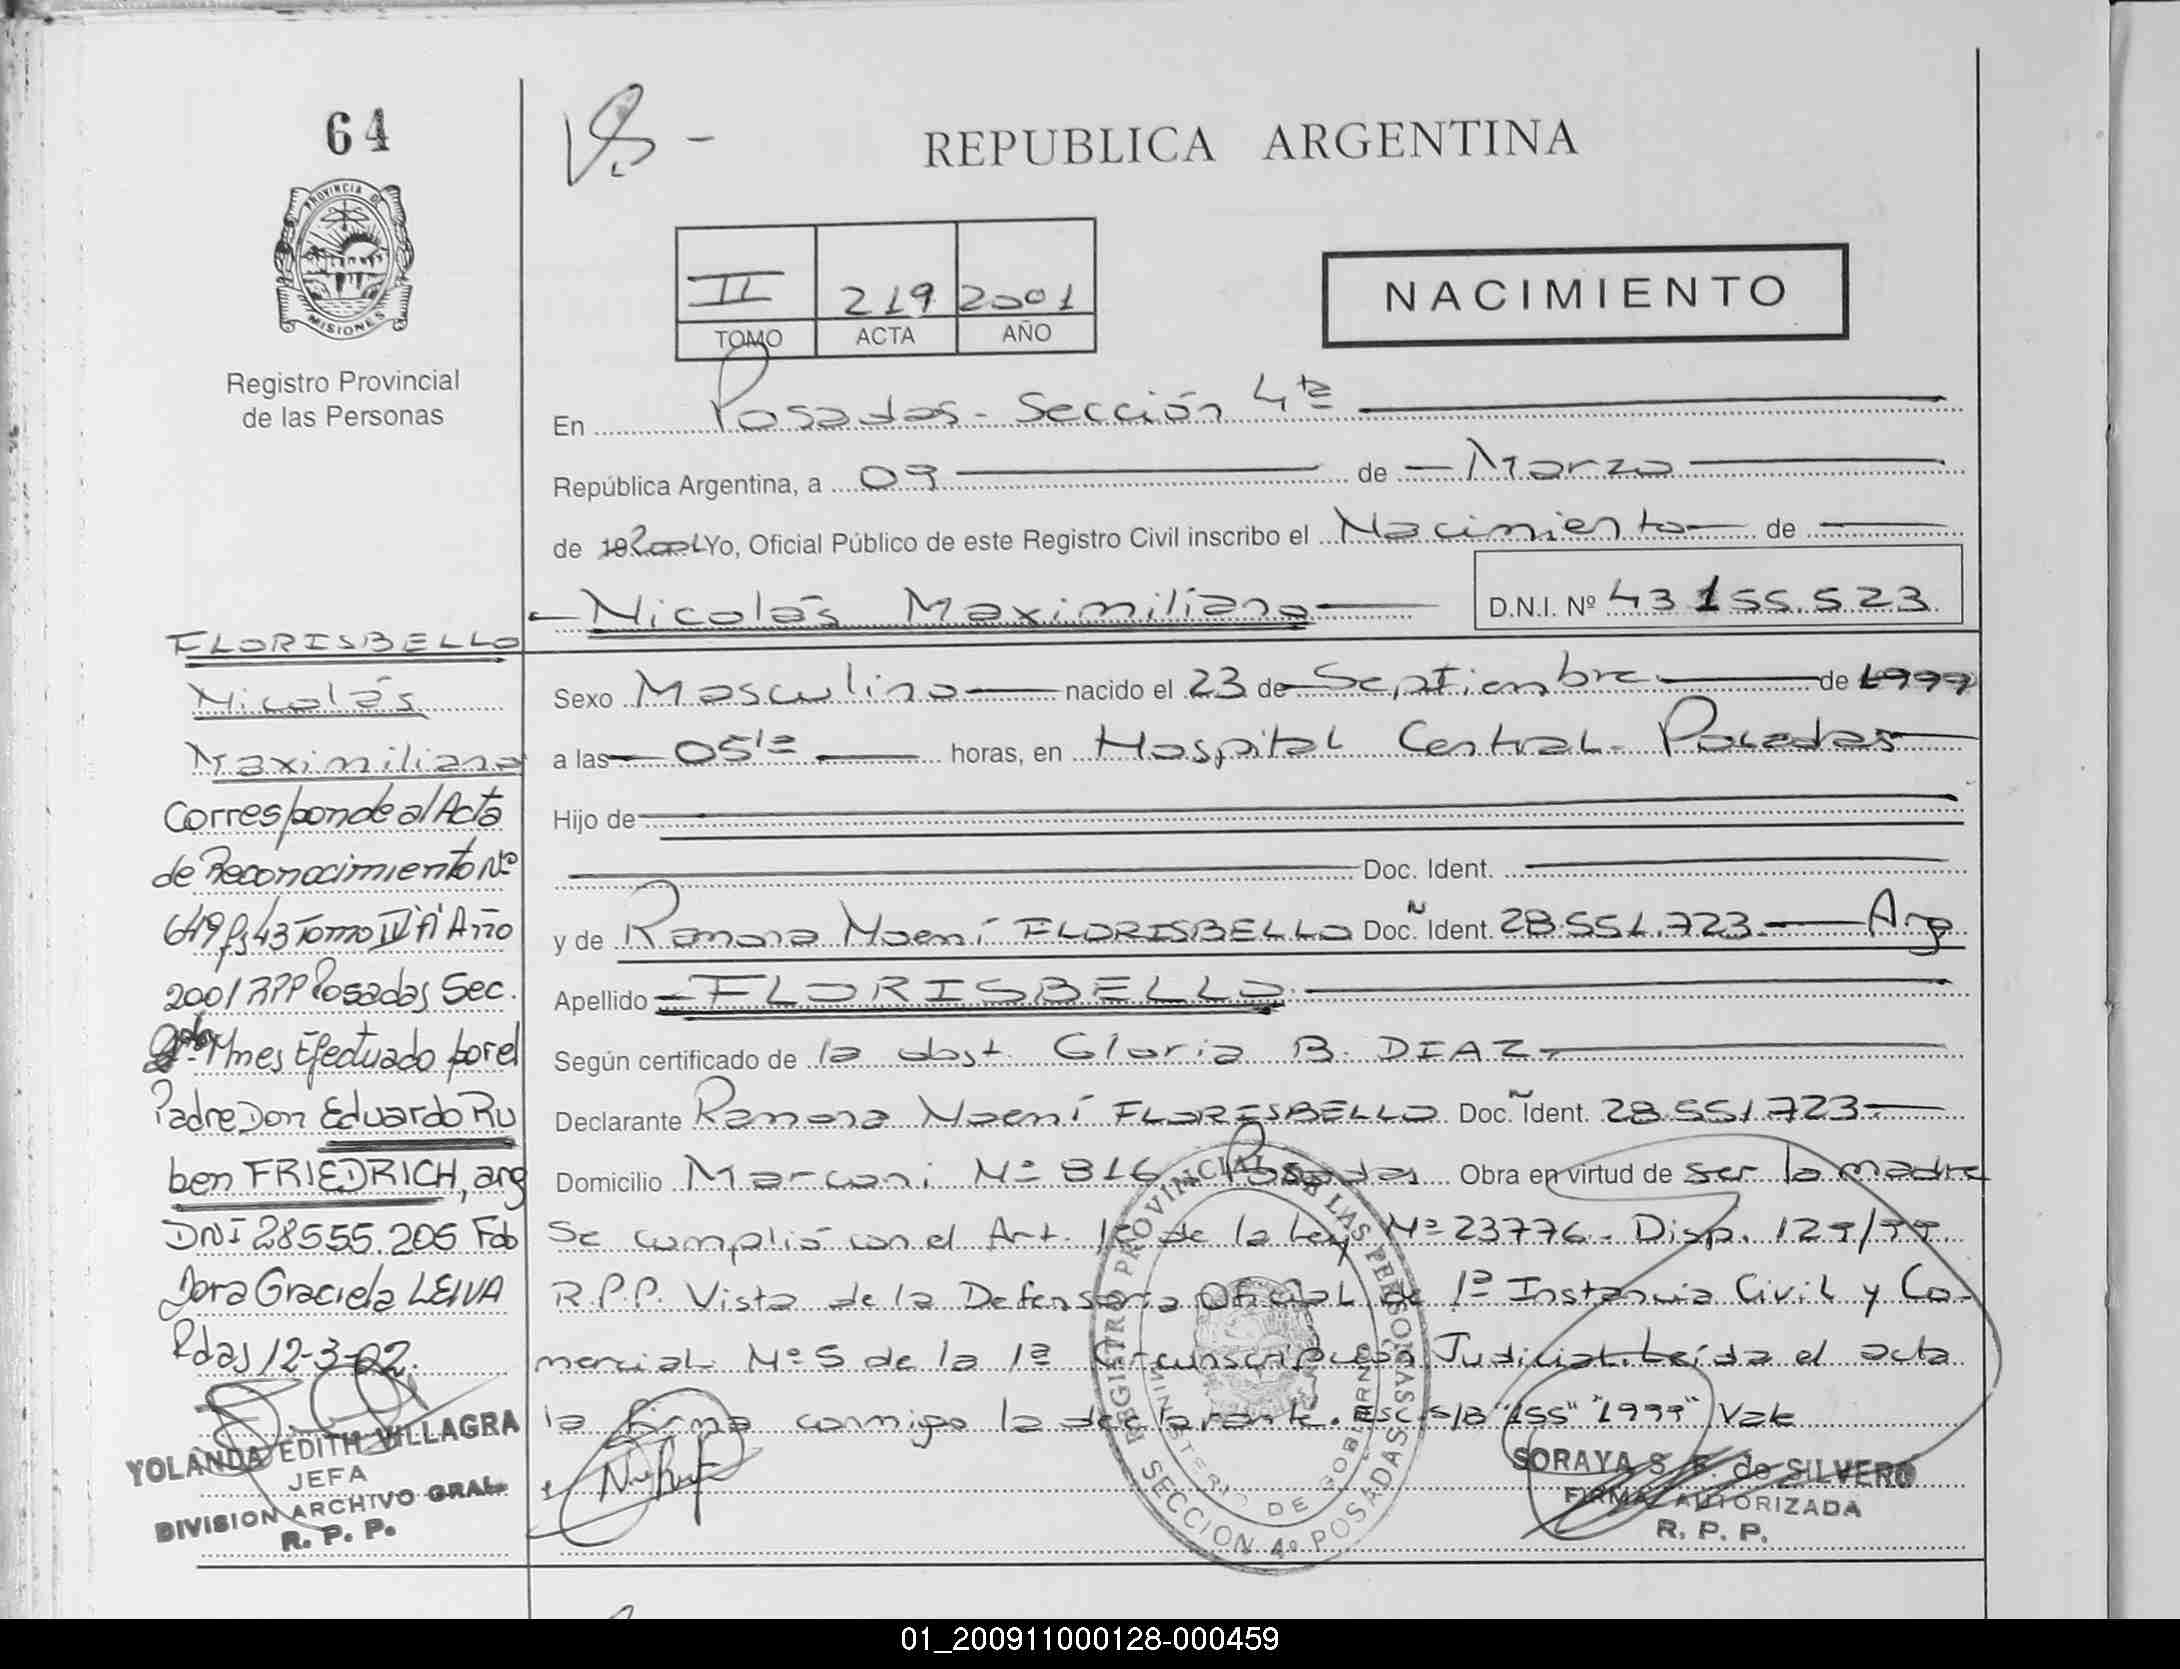 64
REPUBLICA ARGENTINA
PROVINCIA DE
MISIONES
Registro Provincial
de las Personas
II 219 2001
TOMO ACTA AÑO
NACIMIENTO
En Posadas - Sección 4ta
República Argentina, a 09 de Marzo
de 2001 Yo, Oficial Público de este Registro Civil inscribo el Nacimiento de
Nicolás Maximiliano D.N.I. Nº 43 155.523
Sexo Masculino nacido el 23 de Septiembre de 1999
a las 05 hs horas, en Hospital Central - Posadas
Hijo de
Doc. Ident.
y de Ramona Noemí FLORISBELLO Doc. Ident. 28.551.723 Arg
Apellido FLORISBELLO
Según certificado de la obst. Gloria B. DIAZ
Declarante Ramona Noemí FLORISBELLO Doc. Ident. 28.551.723
Domicilio Marconi Nº 816 Posadas Obra en virtud de ser la madre
Se cumplió con el Art. de la Ley Nº 23776 - Disp. 129/99
R.P.P. Vista de la Defensoría Oficial de 1ª Instancia Civil y Co-
mercial Nº 5 de la 1ª Circunscripción Judicial. Leída el acta
la firma conmigo la declarante. Esc. s/B "155" "1999" Vale
FLORISBELLO
Nicolás
Maximiliano
Corresponde al Acta
de Reconocimiento Nº
649 fs 43 Tomo IV"A" Año
2001 RPP Posadas Sec.
Mnes Efectuado por el
Padre Don Eduardo Ru
ben FRIEDRICH, arg
DNI 28555.206 Fdo
Dora Graciela LEIVA
Pdas 12-3-02.
YOLANDA EDITH VILLAGRA
JEFA
DIVISION ARCHIVO GRAL.
R. P. P.
REGISTRO PROVINCIAL DE LAS PERSONAS
MINISTERIO DE GOBIERNO
SECCION 4º POSADAS
SORAYA S. F. de SILVERO
FIRMA AUTORIZADA
R. P. P.
01_200911000128-000459